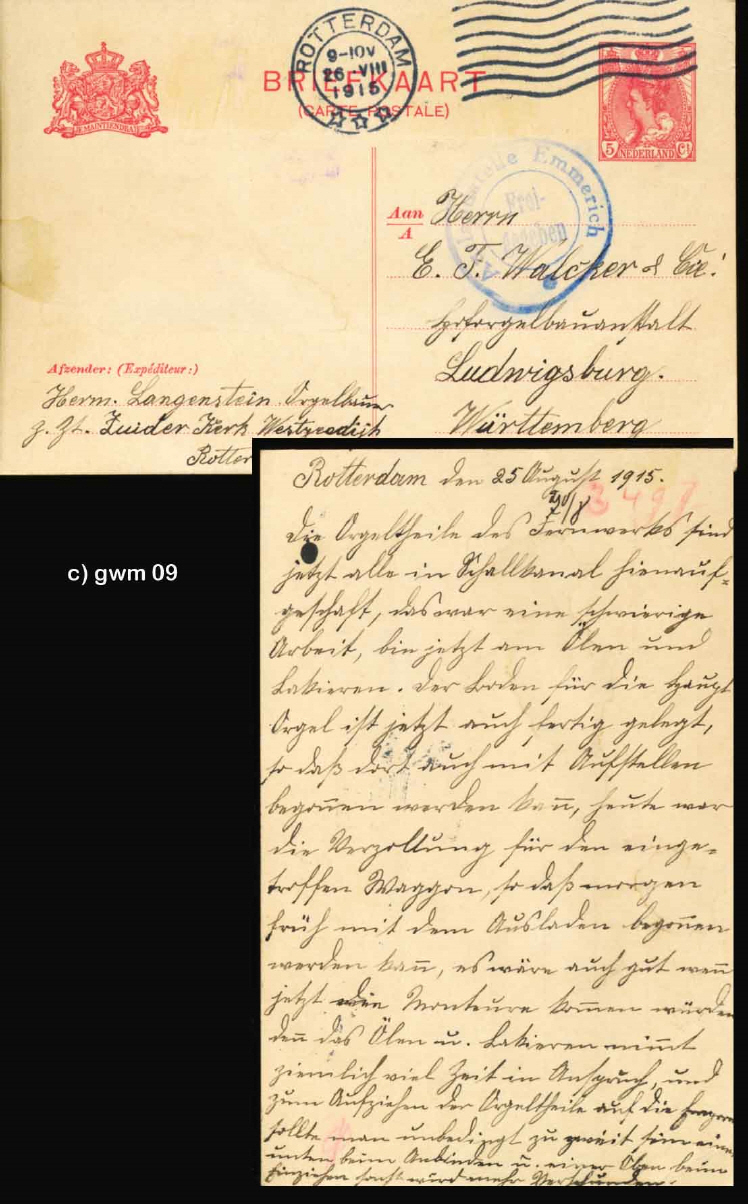 ROTTERDAM
9-10V
26 VIII
1915
BRIEFKAART
(CARTE POSTALE)
JE MAINTIENDRAI
5 NEDERLAND Ct
Emmerich
Frei-
gegeben
Aan
A
Herrn
E. F. Walcker & Cie!
Hoforgelbauanstalt
Ludwigsburg.
Württemberg
Afzender: (Expéditeur:)
Herm. Langenstein Orgelbauer
z. Zt. Zuider Kerk Westzeedijk
Rotter
c) gwm 09
Rotterdam den 25 August 1915.
Die Orgeltheile des Fernwerks sind
jetzt alle in Schallkanal hienauf-
geschaft, das war eine schwierige
Arbeit, bin jetzt am Ölen und
Lakieren. Der Boden für die Haupt
Orgel ist jetzt auch fertig gelegt,
so daß dort auch mit Aufstellen
begonnen werden kann, heute war
die Verzollung für den einge-
troffen Waggon, so daß morgen
früh mit dem Ausladen begonnen
werden kann, es wäre auch gut wenn
jetzt die Monteure kommen würden
denn das Ölen u. Lakieren nimmt
ziemlich viel Zeit in Anspruch, und
zum Aufziehen der Orgeltheile auf die
sollte man unbedingt zu zweit sein einer
unten beim Anbinden u. einer Oben beim
Einziehen sonst wird mehr Verschunden.